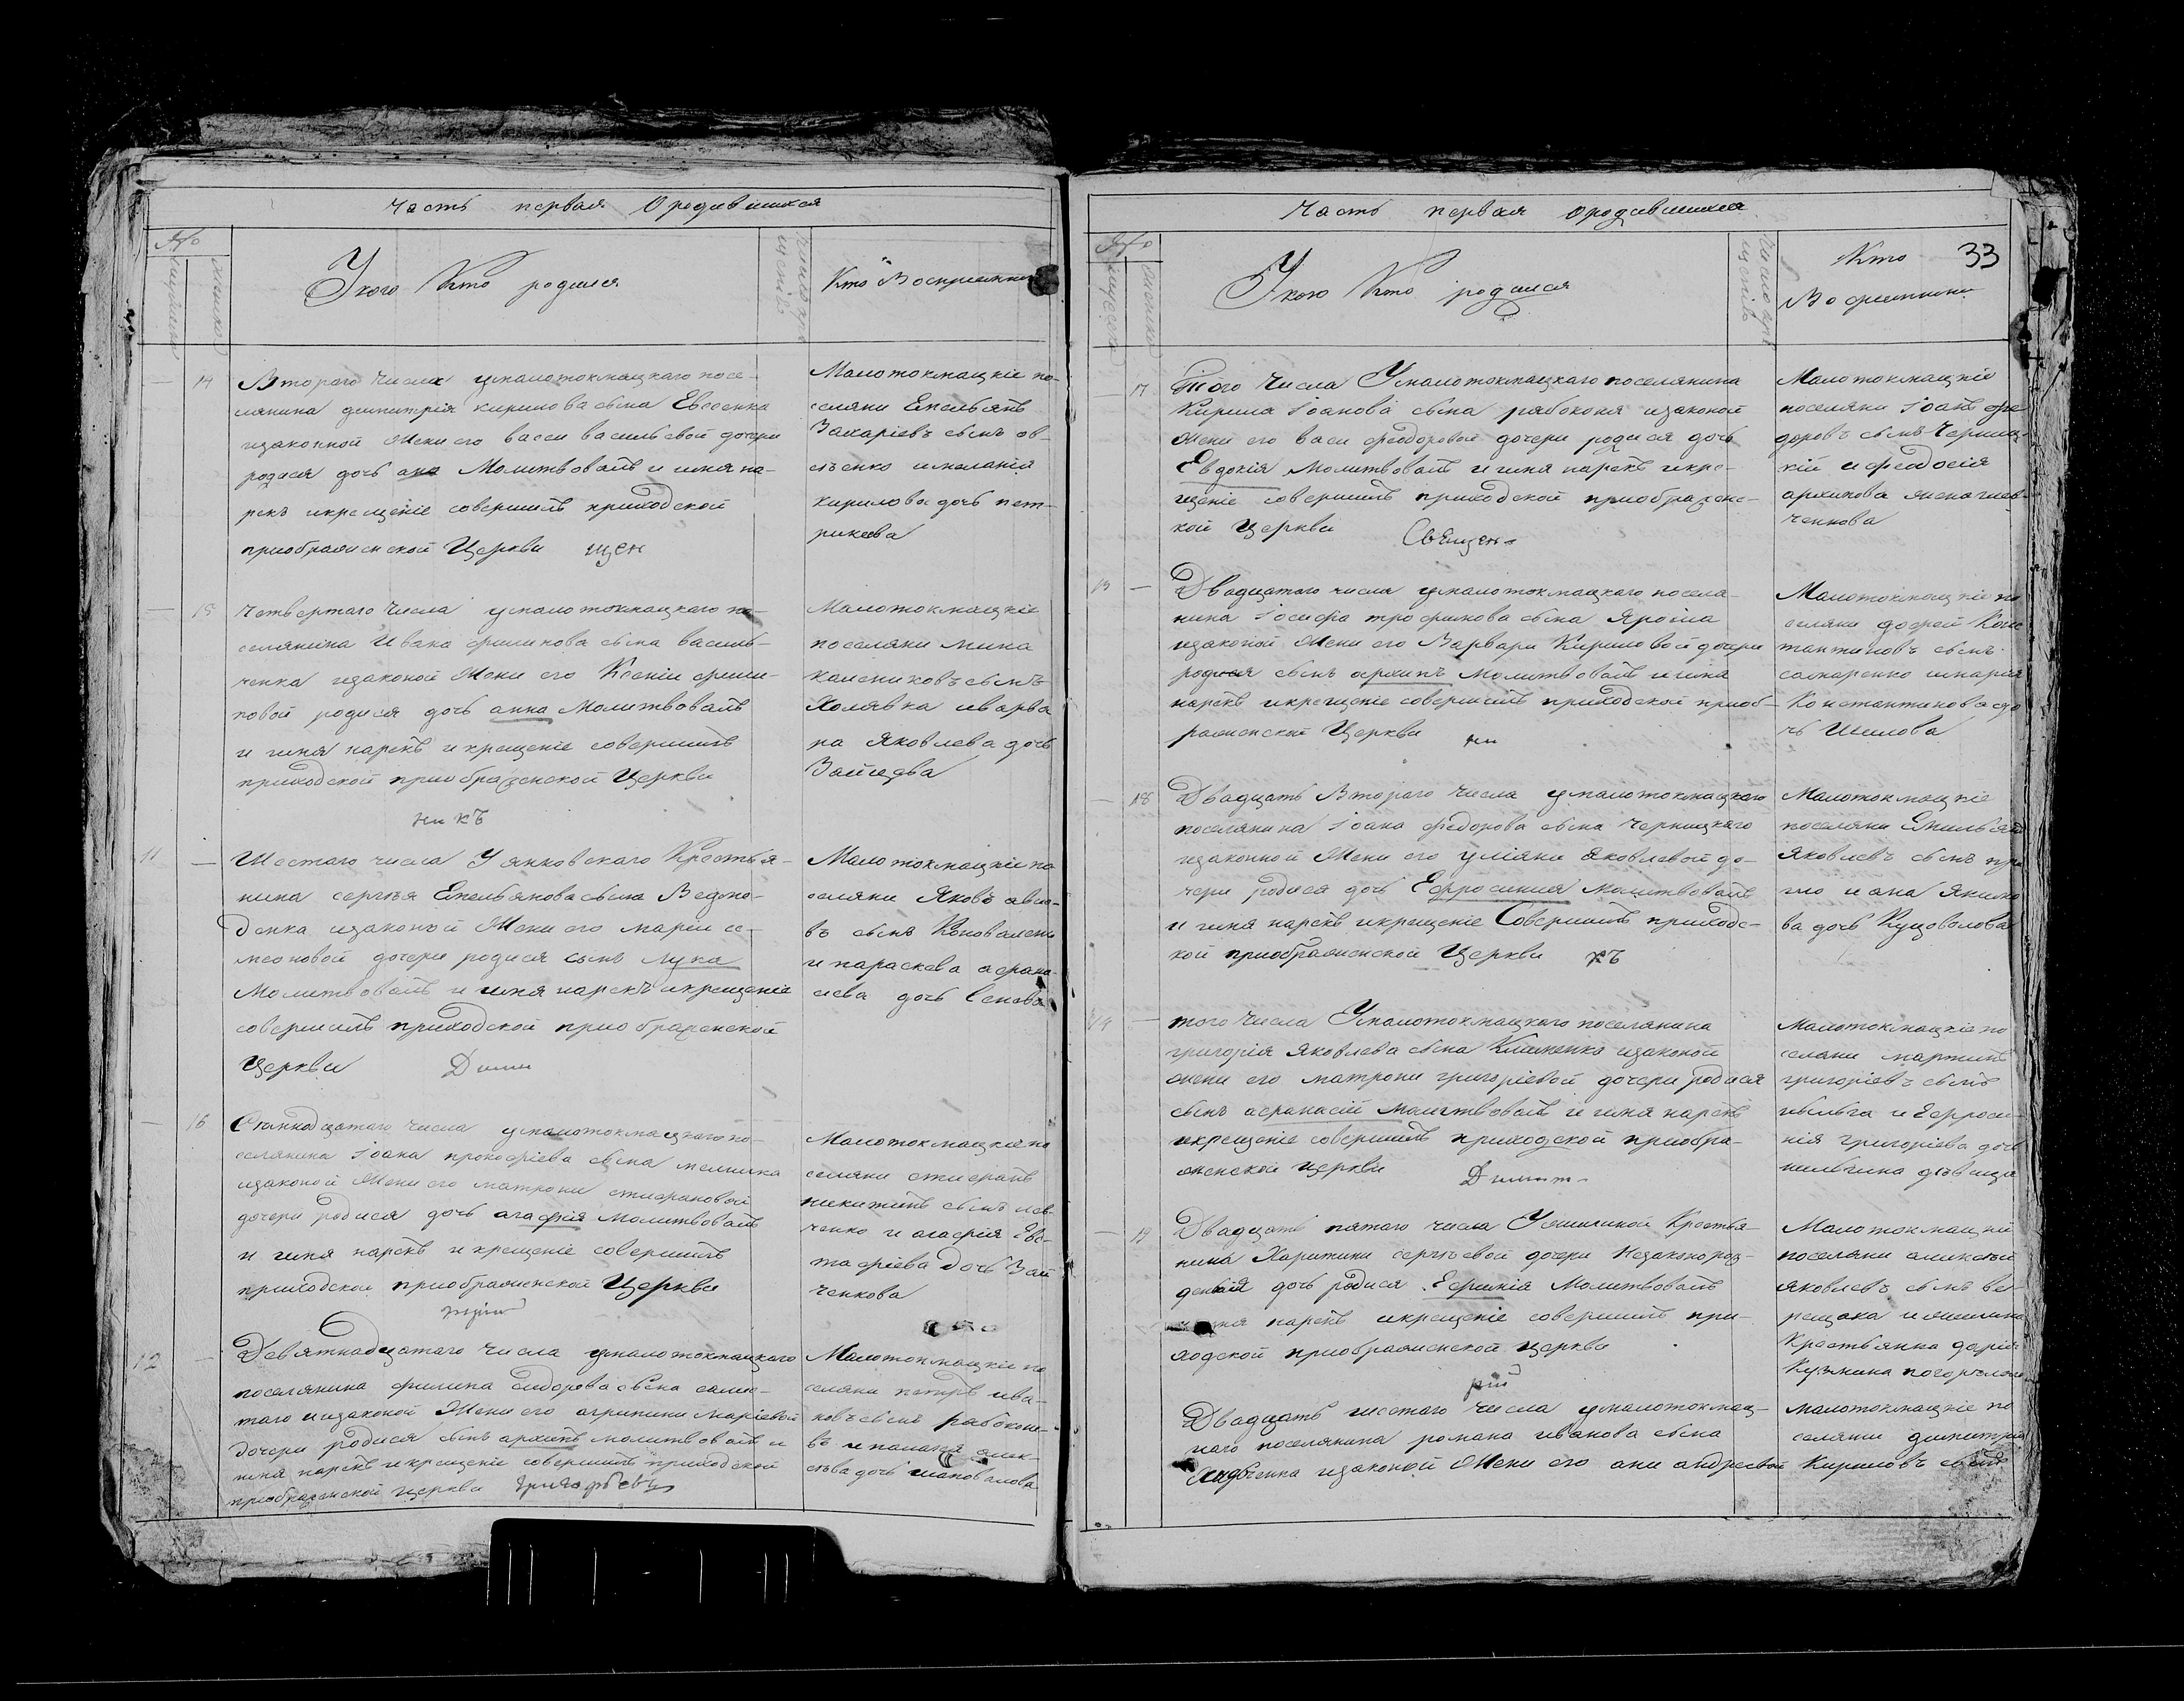 Часть первая О родившихся
№
мужеска
женска
У кого Кто родился
число крещенія
Кто Восприемники
14
Второго числа у малотокмацкаго посе-
лянина димитрія кирилова сына Евсенка
изаконной жени его васси васильевой дочери
родися дочь ана Молитвовалъ и имя на-
рекъ икрещеніе совершилъ приходской
приображенской Церкви щен
Малотокмацкіе по-
селяни Емельянъ
Захаріевъ сынъ ов-
сѣенко имеланія
кирилова дочь пет-
рикова
15
Четвертаго числа у малотокмацкаго по-
селянина Ивана филипова сына василь-
ченка изаконой жени его Ксеніи фили-
повой родися дочь анна Молитвовалъ
и имя нарекъ и крещеніе совершилъ
приходской приображенской Церкви
никъ
Малотокмацкіе
поселяни мина
сынъ
Холявка иварва
ра Яковлева дочь
11
Шестаго числа У янковскаго Крестья-
нина сергѣя Емельянова сына
изаконой Жени его маріи се-
меоновой дочери родися сынъ лука
Молитвовалъ и имя нарекъ икрещеніе
совершилъ приходской приображенской
Церкви Дими
Малотокмацкіе по
селяни Яковъ
въ сынъ Коновален
и параскева афана-
сіева дочь
16
числа у малотокмацкаго по-
селянина Іоана прокофіева сына мелника
изаконой Жени его матрони стефановой
дочери родися дочь агафія Молитвовалъ
и имя нарекъ и крещеніе совершилъ
приходской приображенской Церкви
Малотокмацкіе по
селяни стефанъ
никитинъ сынъ лев-
ченко и агафія Евс-
тафіева дочь Зай
ченкова
12
Девятнадцатаго числа у малотокмацкаго
поселянина филипа Сидорова сына
изаконой Жени его агрипини
дочери родися сынъ архипъ молитвовалъ и
имя нарекъ икрещеніе совершилъ приходской
приображенской церкви григорьевъ
Малотокмацкіе по
селяни петръ ива-
новъ сынъ рабоконе-
въ ипалагея алек-
сѣева дочь шаповалова
Часть первая о родившихся
33
№
мужеска
женска
У кого Кто родился
число крещенія
Кто
Восприемники
17
Того Числа У малотокмацкаго поселянина
Кирила Іоанова сына рябоконя изаконой
жени его васи феодоровой дочери родися дочь
Евдокія Молитвовалъ и имя нарекъ икре-
щеніе совершилъ приходской приображенс-
кой Церкви Священ
Малотокмацкіе
поселяни Іоанъ фе
доровъ сынъ Черниц-
кій и феодосія
архипова жена
ченкова
13
Двадцатаго числа у малотокмацкаго посела-
нина Іосифа трофимова сына
изаконой Жени его Варвари Кириловой дочери
родися сынъ архипъ Молитвовалъ и имя
нарекъ икрещеніе совершилъ приходской приоб-
раженской Церкви ни
Малотокмацкіе по
селяни Конс
тантиновъ сынъ
самаренко имарія
Константинова до
чь Шилова
18
Двадцать Второго числа у малотокмацкаго
поселянина Іоана федорова сына черницкаго
изаконной Жени его уліяни Яковлевой до-
чери родися дочь Ефросинія молитвовалъ
и имя нарекъ икрещеніе Совершилъ приходс-
кой приображенской Церкви къ
Малотокмацкіе
поселяни Емельянъ
Яковлевъ сынъ
и ана Якимо
ва дочь Куцоволова
14
того числа У малотокмацкаго поселянина
григорія Яковлева сына Клименко изаконой
жени его матрони григоріевой дочери родися
сынъ афанасій молитвовалъ и имя нарекъ
икрещеніе совершилъ приходской приобра-
женской церкви Димит
Малотокмацкіе по
селяни мартинъ
григоріевъ сынъ
и Ефроси-
нія григоріева дочь
девица
19
Двадцать пятаго числа Крестья-
нина Харитини сергѣевой дочери Незаконорож-
деная дочь родися Ефимія Молитвовалъ
имя нарекъ икрещеніе совершилъ при-
ходской приображенской церкви
рій
Малотокмацкіе
поселяни алексѣй
яковлевъ сынъ ве-
рещака и
Крестьянка дарія
Кузмина
Двадцать шестаго числа у малотокмац-
каго поселянина романа иванова сына
изаконой Жени его ани андреевой
малотокмацкіе по
селяни димитрій
Кириловъ сынъ